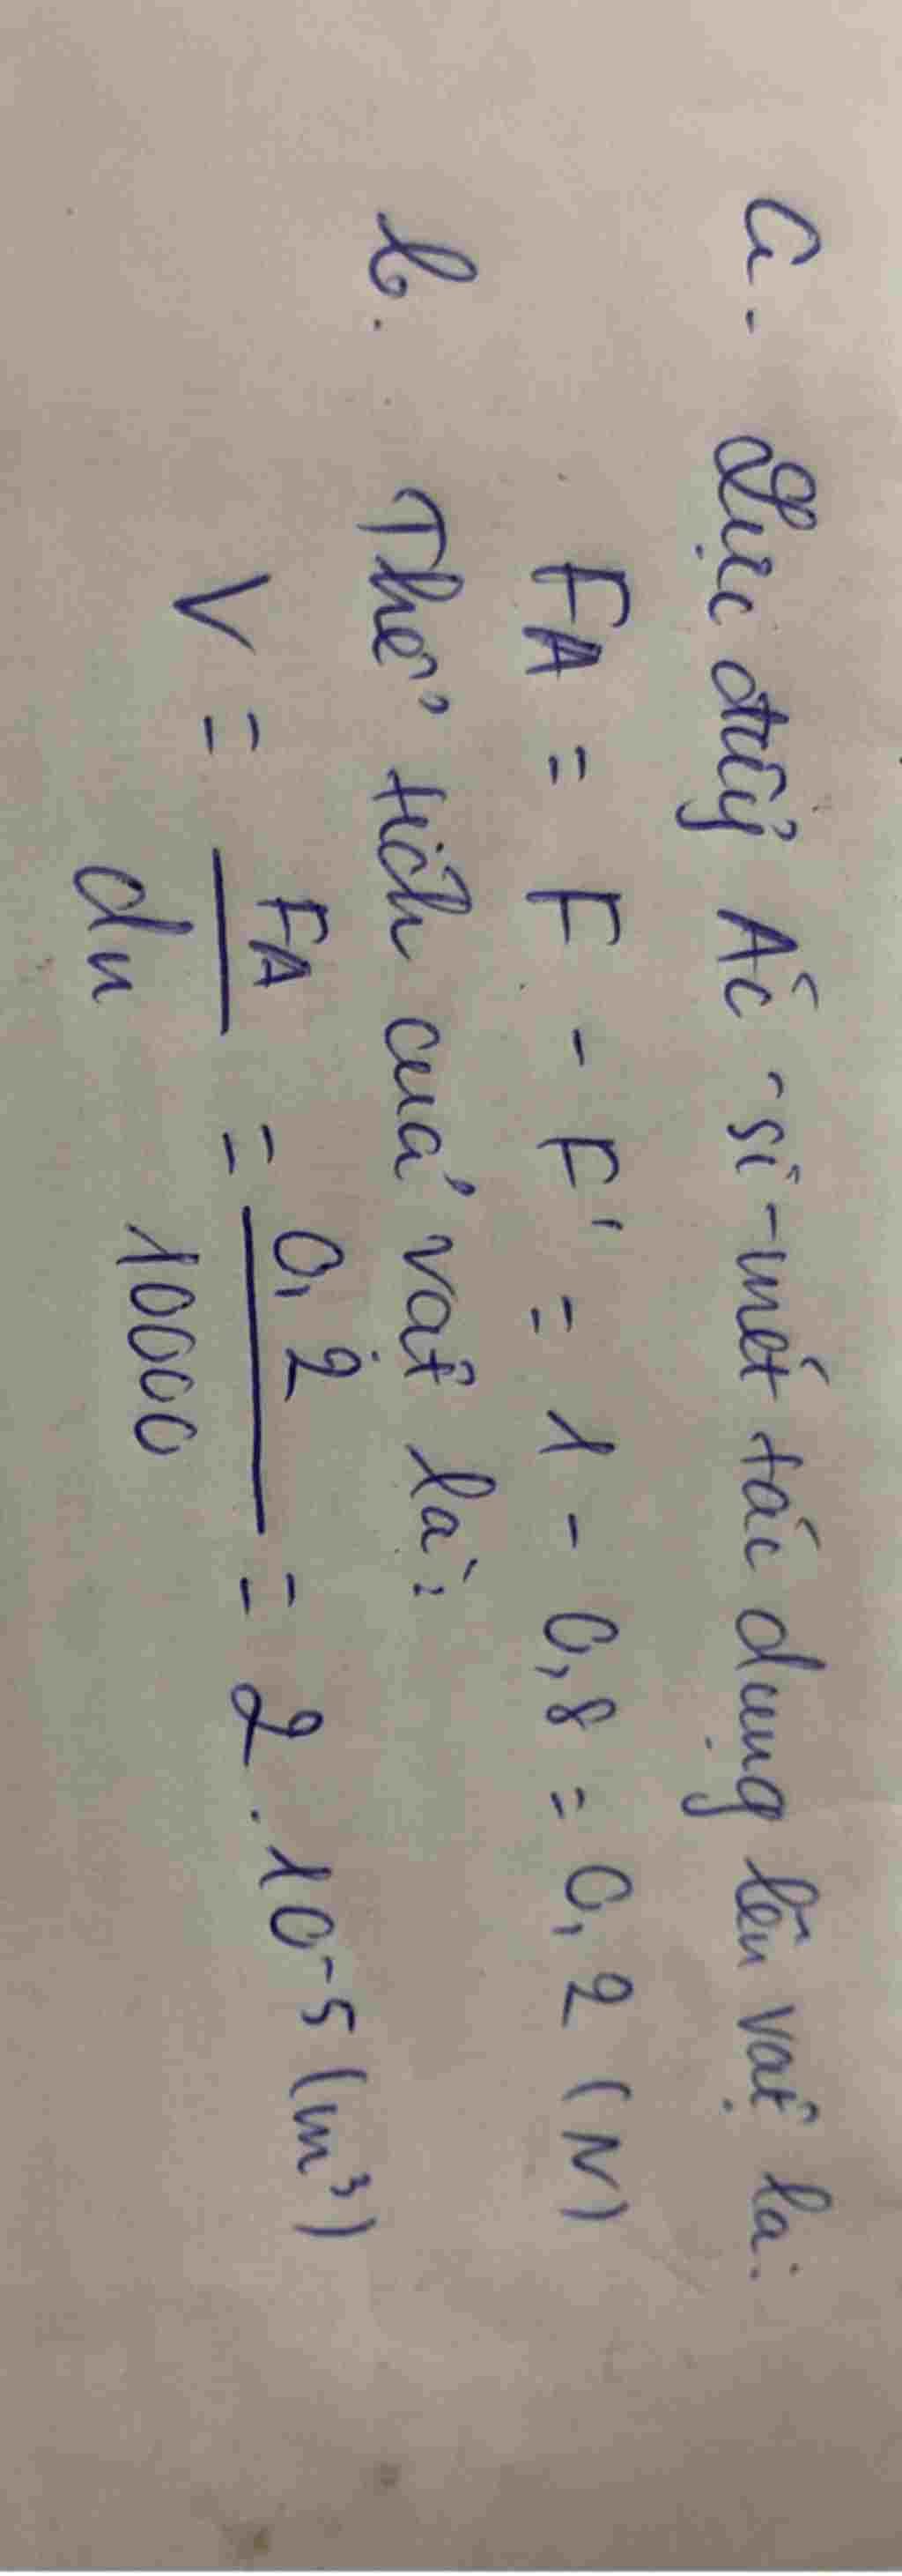 a. Lực đẩy Ác-si-mét tác dụng lên vật là:
FA = F - F' = 1 - 0,8 = 0,2 (N)
b. Thể tích của vật là:
V = FA / dn = 0,2 / 10000 = 2.10⁻⁵ (m³)